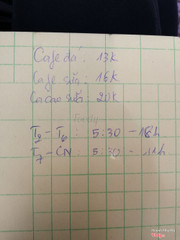 Cafe đá : 13k
Cafe sữa : 16k
Cacao sữa : 20k
T2 - T6 : 5:30 - 16h
T7 - CN 5:30 - 11h